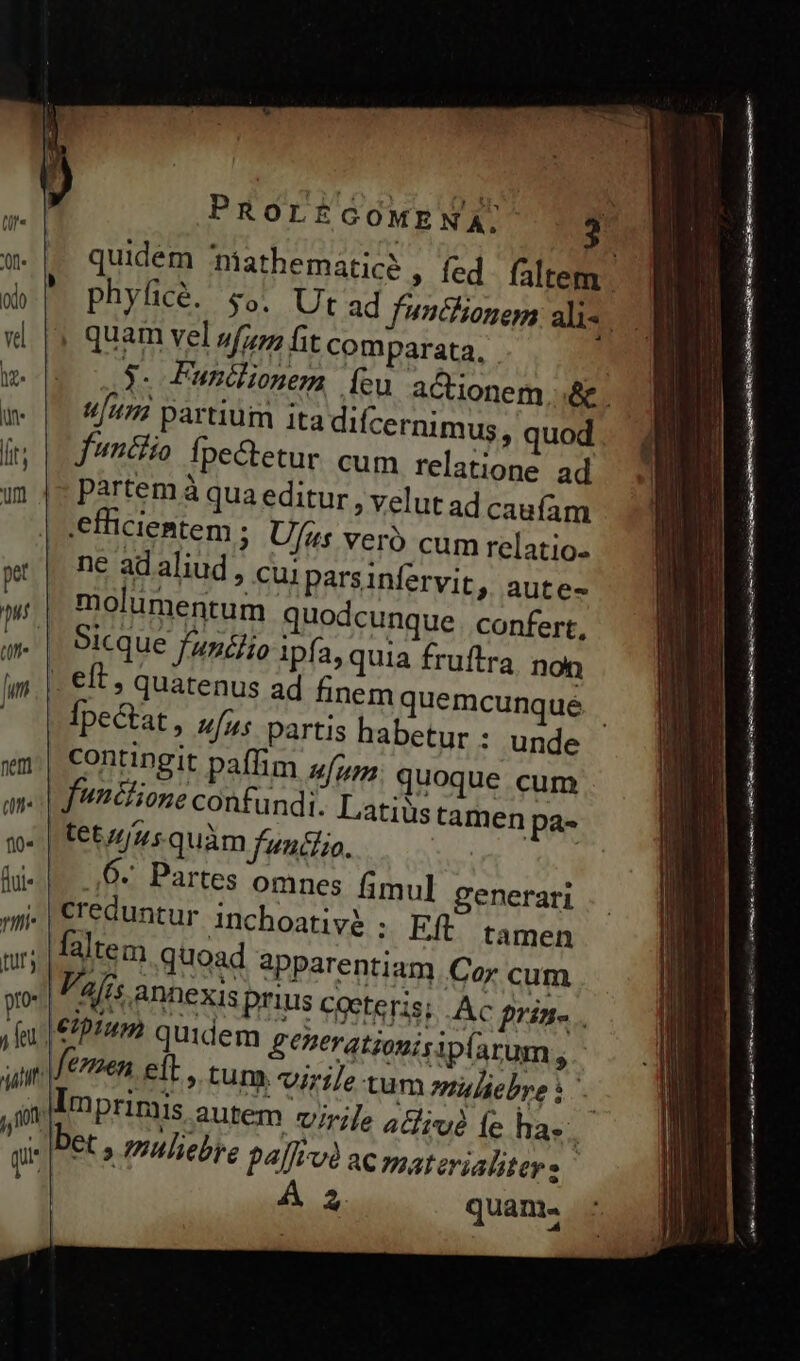 PROLEGOMENA. 3
quidem mathematicè, ſed ſaltem
phyſicè. 5o. Ut ad functionem ali-
quam vel uſum ſit comparata.
5. Functionem ſeu actionem &
uſum partium ita diſcernimus, quod
functio ſpectetur cum relatione ad
partem à qua editur, velut ad cauſam
efficientem; Uſus verò cum relatio-
ne ad aliud, cui pars inſervit, aut e-
molumentum quodcunque confert.
Sicque functio ipſa, quia fruſtra non
eſt, quatenus ad finem quemcunque
ſpectat, uſus partis habetur: unde
contingit paſſim uſum quoque cum
functione confundi. Latiùs tamen pa-
tet uſus quàm functio.
6. Partes omnes ſimul generari
creduntur inchoativè: Eſt tamen
ſaltem quoad apparentiam Cor cum
Vaſis annexis prius cœteris; Ac prin-
cipium quidem generationis ipſarum,
ſemen eſt, tum virile tum muliebre:
Imprimis autem virile activè ſe ha-
bet, muliebre paſſivè ac materialiter:
A 2 quam-